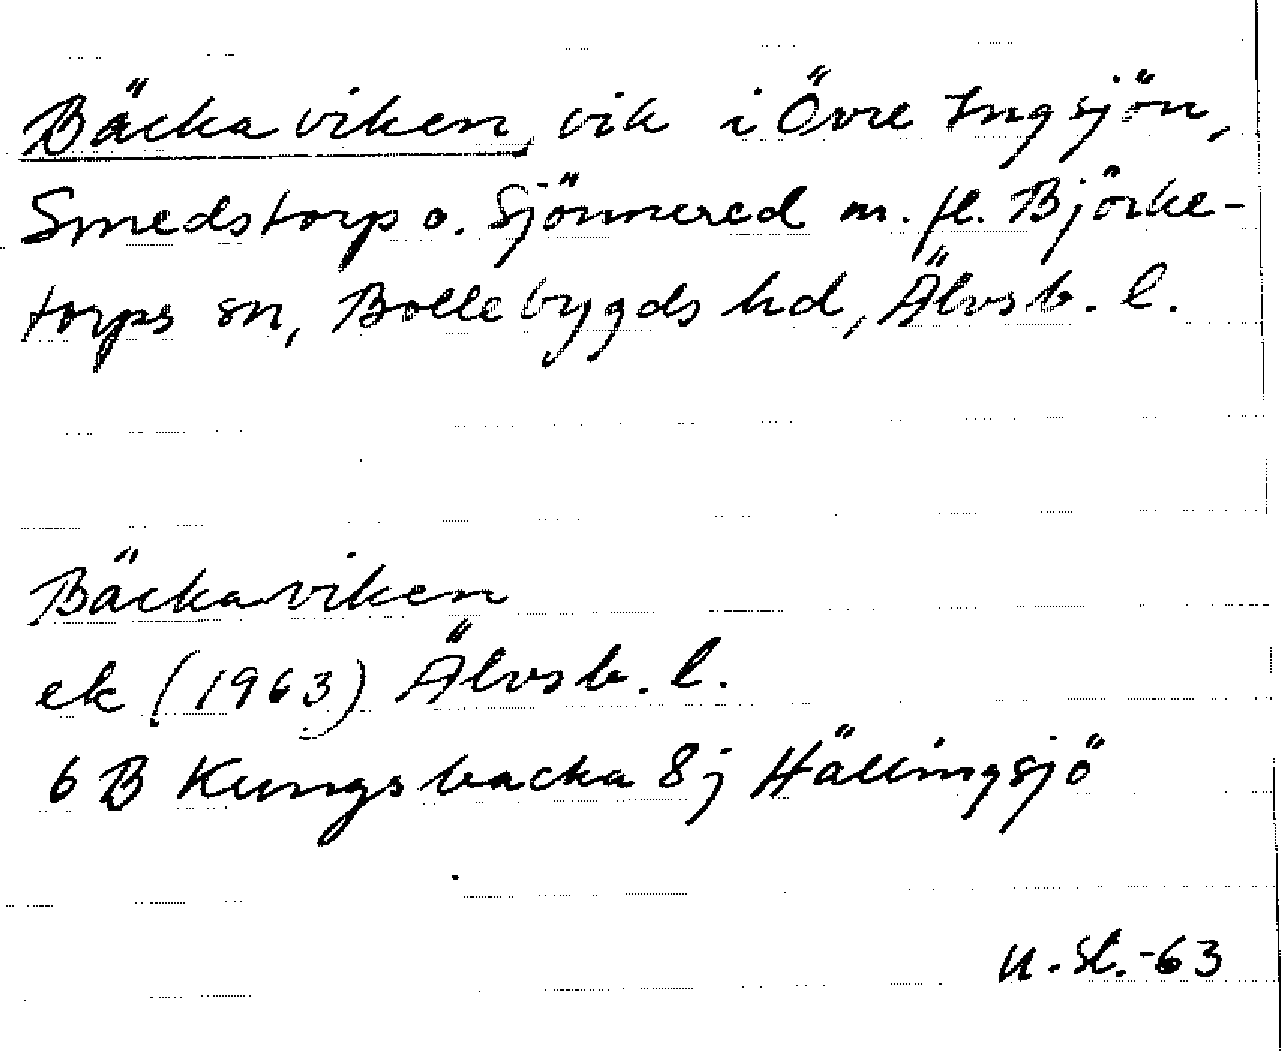 Bäckaviken, vik i Övre Ingsjön,
Smedstorp o. Sjönnered m. fl. Björke-
torps sn, Bollebygds hd, Älvsb. l.
Bäckaviken
ek (1963) Älvsb. l.
6 B Kungsbacka 8j Hällingsjö
U. St. -63